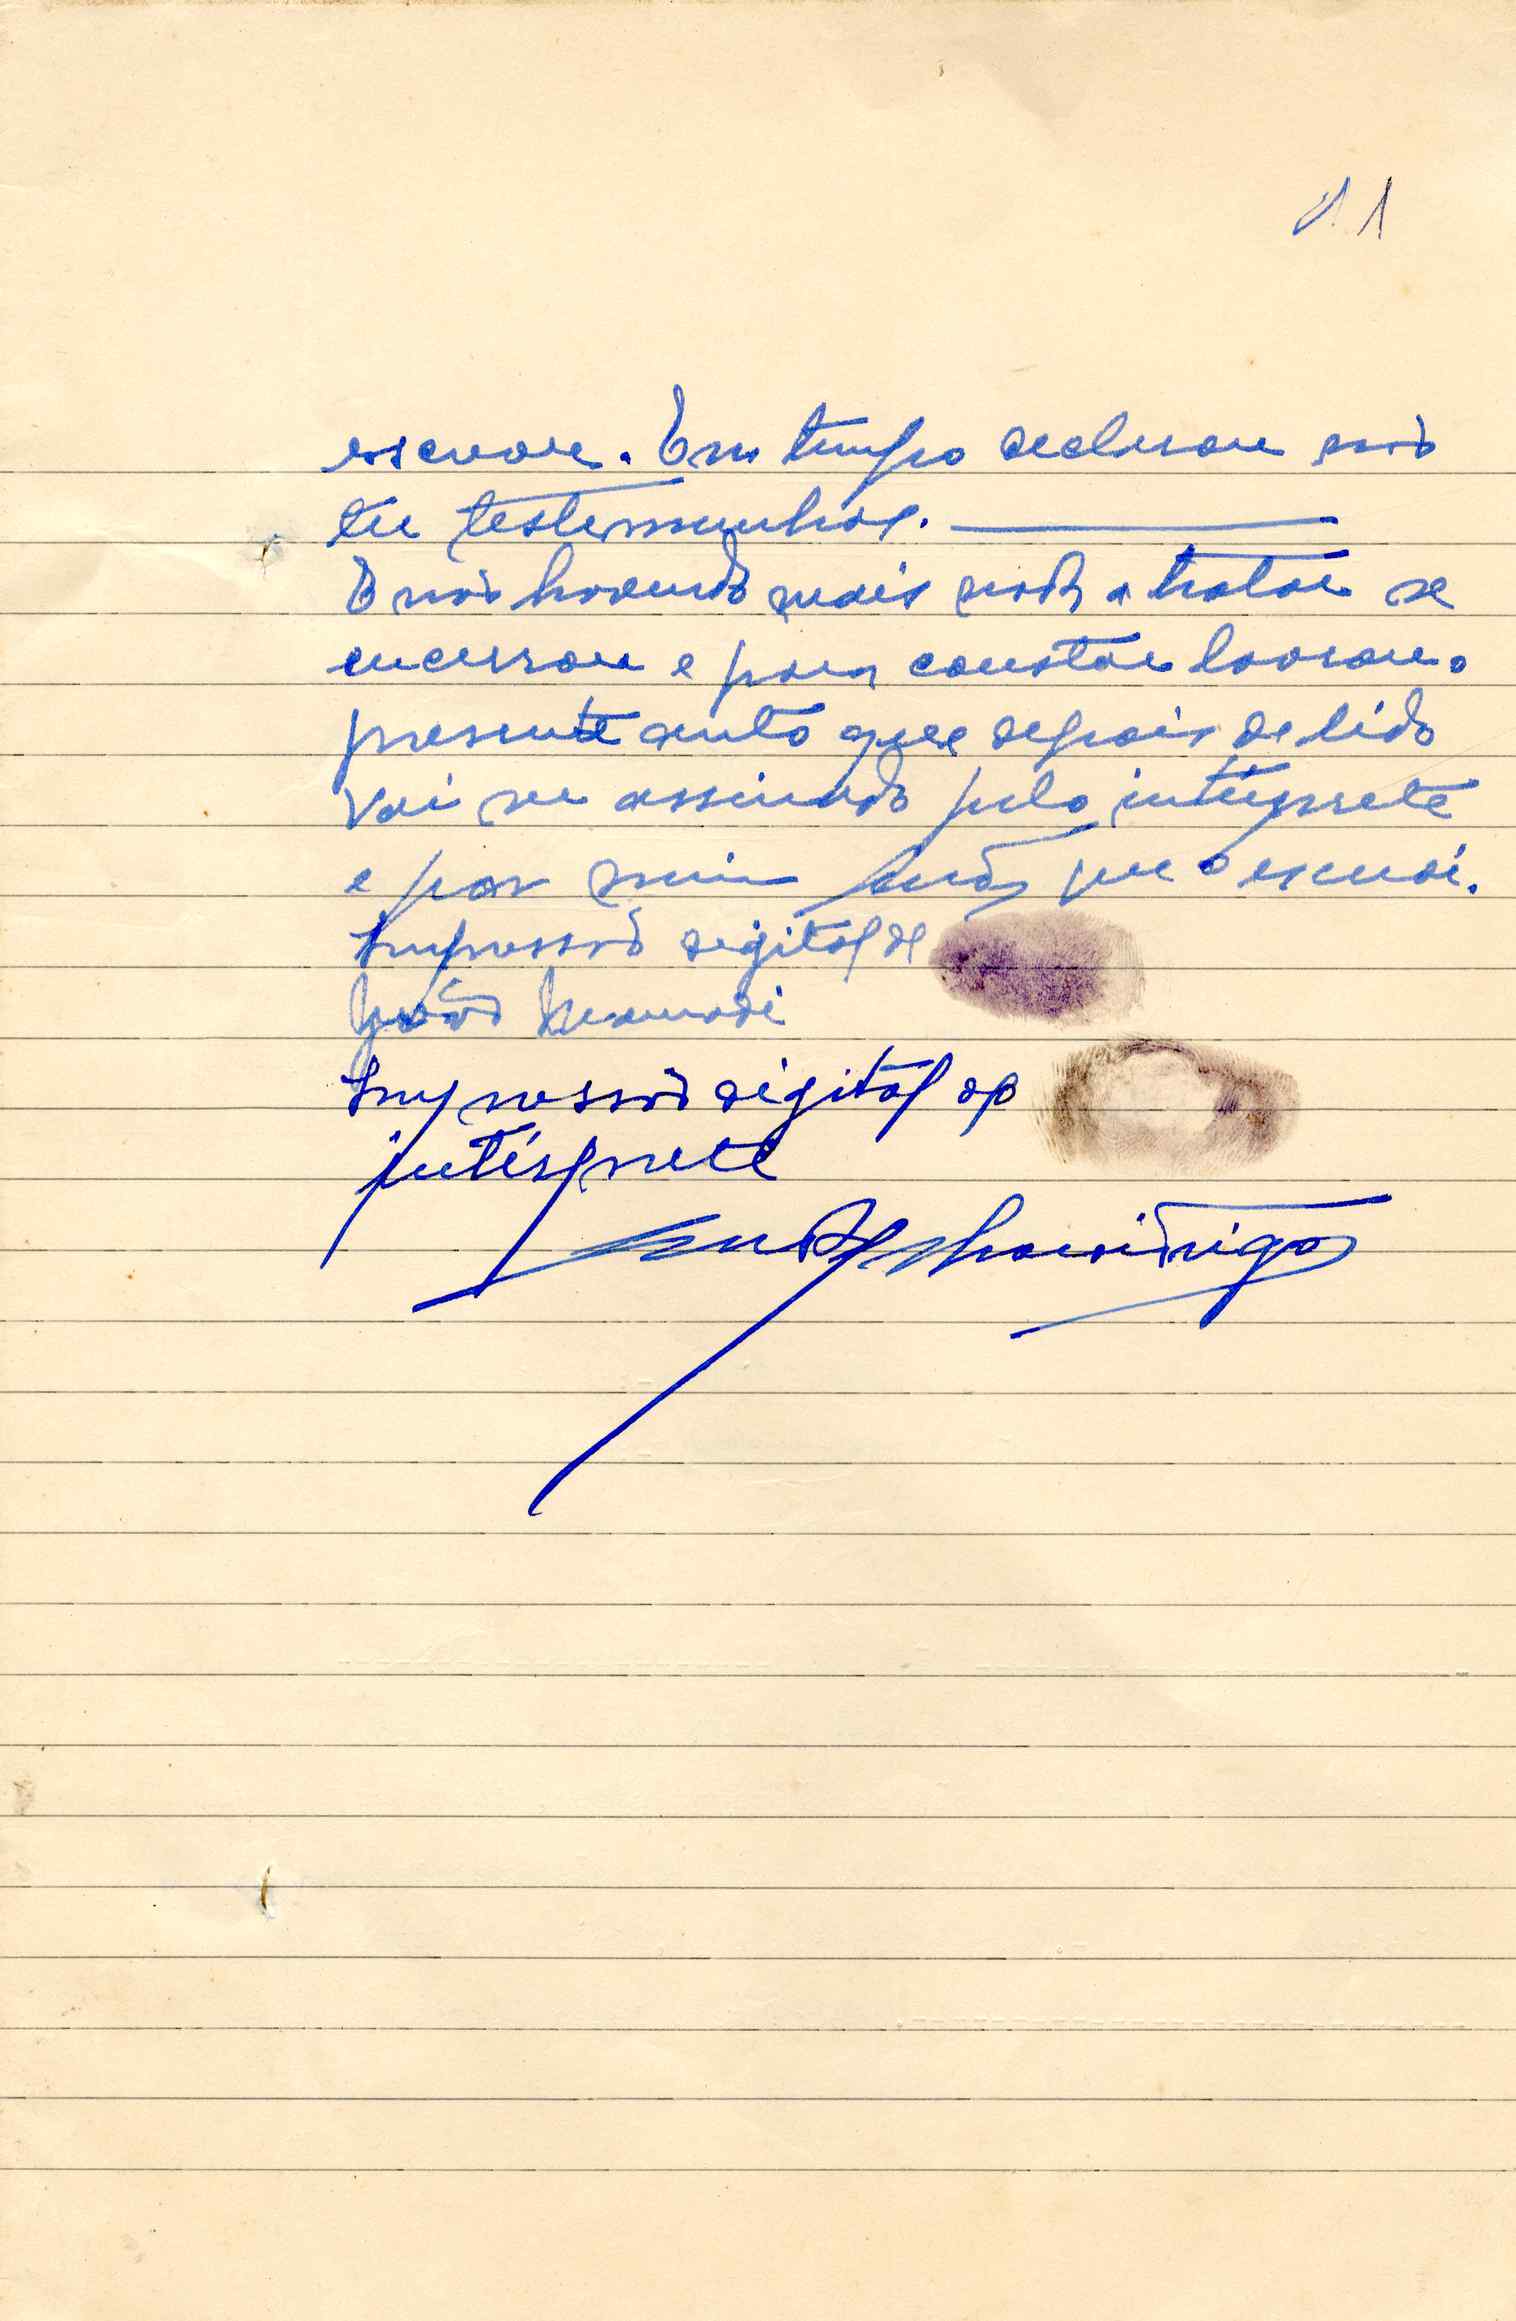 11
escrever. Em tempo declarou não
ter testemunhas.
E não havendo mais nada a tratar se
encerrou e para constar lavrou o
presente auto que depois de lido
vai ser assinado pelo intérprete
e por mim que o escrevi.
Impressão digital de
Impressão digital do
intérprete